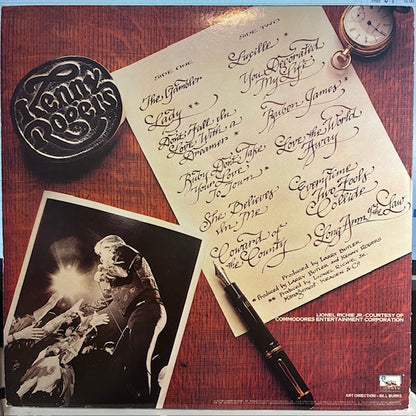 Kenny
Rogers
SIDE ONE
The Gambler
Lady **
Don't Fall In
Love With a
Dreamer *
Ruby Don't Take
Your Love
To Town *
She Believes
In Me
Coward of
the County
SIDE TWO
Lucille *
You Decorated
My Life
Reuben James *
Love The World
Away
Every Time
Two Fools
Collide
Long Arm of the Law
Produced by Larry Butler
* Produced by Larry Butler and Kenny Rogers
** Produced by Lionel Richie Jr.
Management: Kragen & Co.
LIONEL RICHIE JR.-COURTESY OF
COMMODORES ENTERTAINMENT CORPORATION
ART DIRECTION - BILL BURKS